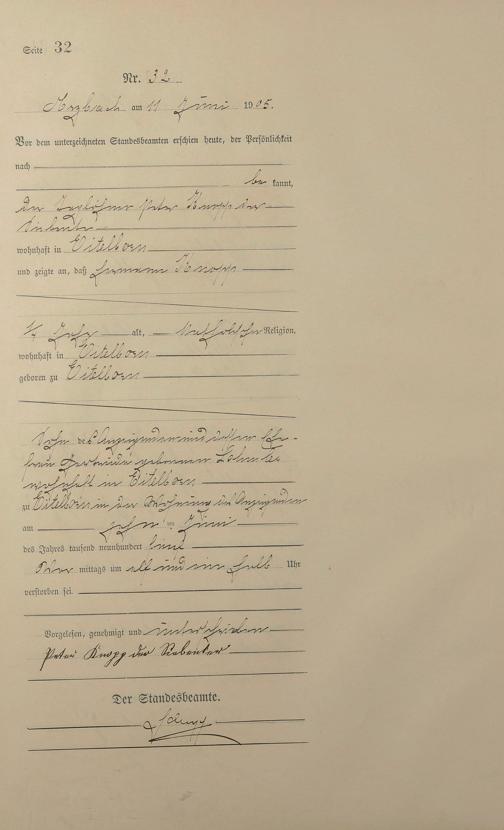 Seite 32
Nr. 32
Arzbach am 11 Juni 1905.
Vor dem unterzeichneten Standesbeamten erschien heute, der Persönlichkeit
nach
be kannt,
der Taglöhner Peter Knopp der
Siebente
wohnhaft in Eitelborn
und zeigte an, daß Hermann Knopp
¼ Jahr alt, katholischer Religion,
wohnhaft in Eitelborn
geboren zu Eitelborn
Sohn des Anzeigenden und dessen Ehe-
frau geborenen
wohnhaft in Eitelborn
zu Eitelborn in der Wohnung des Anzeigenden
am zehnten Juni
des Jahres tausend neunhundert fünf
Vor mittags um elf und ein halb Uhr
verstorben sei.
Vorgelesen, genehmigt und unterschrieben
Peter Knopp der Siebenter
Der Standesbeamte.